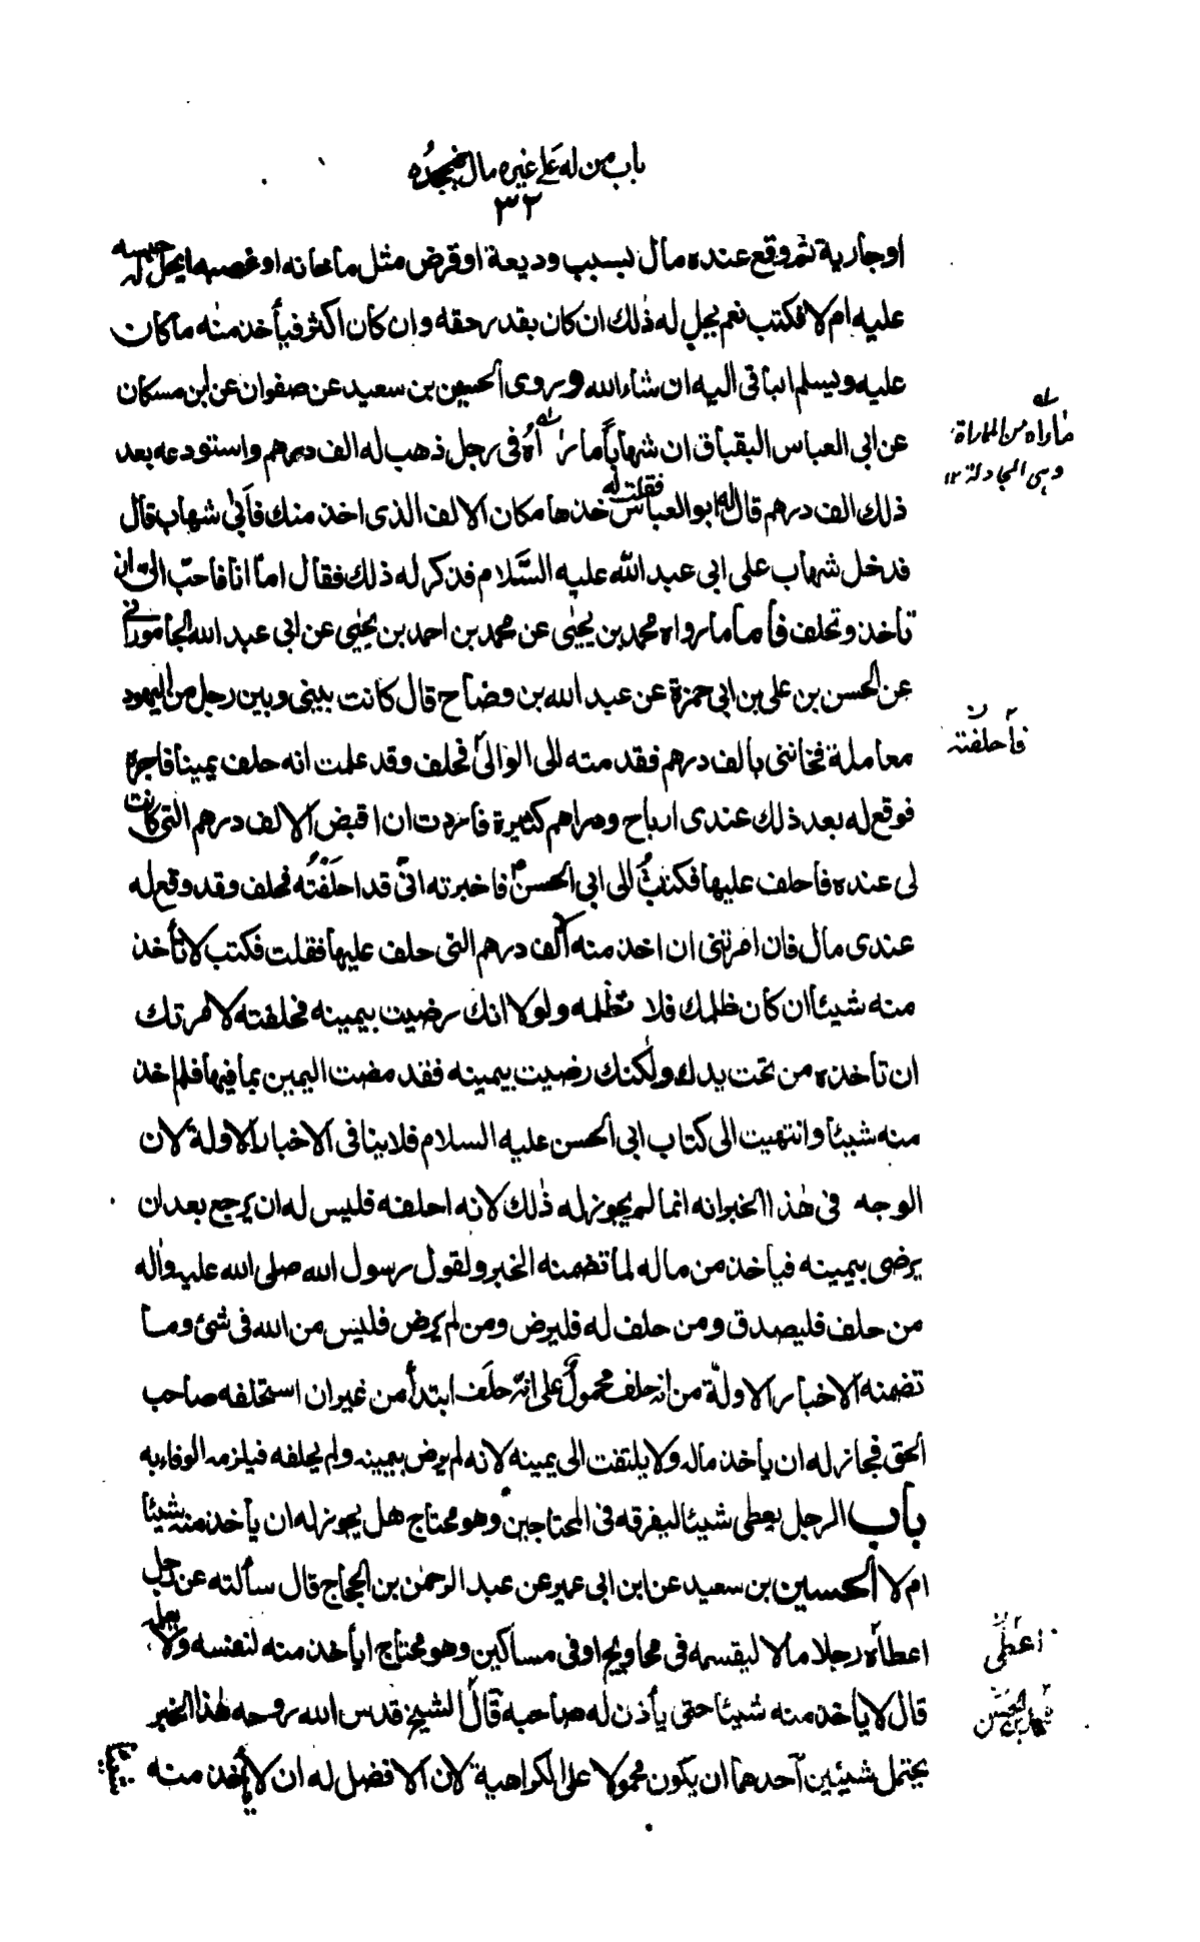 باب من له على غيره مال فيجحده
٣٢
او جارية ثم وقع عنده مال بسبب وديعة او قرض مثل ما خانه او غصبه ايحل له حبسه
عليه ام لا فكتب نعم يحل له ذلك ان كان بقدر حقه وان كان اكثر فيأخذ منه ما كان
عليه ويسلم الباقى اليه ان شاء الله وروى الحسين بن سعيد عن صفوان عن ابن مسكان
عن ابى العباس البقباق ان شهاباً ماراه فى رجل ذهب له الف درهم واستودعه بعد
ذلك الف درهم قال ابو العباس فقلت له خذها مكان الالف الذى اخذ منك فأبى شهاب قال
فدخل شهاب على ابى عبد الله عليه السّلام فذكر له ذلك فقال امّا انا فاحبّ الىّ ان
تأخذ وتحلف فأما ما رواه محمد بن يحيى عن محمد بن احمد بن يحيى عن ابى عبد الله الجامورانى
عن الحسن بن على بن ابى حمزة عن عبد الله بن وضاح قال كانت بينى وبين رجل من اليهود
معاملة فخاننى بالف درهم فقدمته الى الوالى فحلف وقد علمت انه حلف يمينا فاجرة
فوقع له بعد ذلك عندى ارباح ودراهم كثيرة فاردت ان اقبض الالف درهم التى كانت
لى عنده فاحلف عليها فكتبتُ الى ابى الحسن فاخبرته انى قد احلفته فحلف وقد وقع له
عندى مال فان امرتنى ان اخذ منه الالف درهم التى حلف عليها فقلت فكتب لا تأخذ
منه شيئا ان كان ظلمك فلا تظلمه ولولا انك رضيت بيمينه فحلفته لامرتك
ان تاخذه من تحت يدك ولكنك رضيت بيمينه فقد مضت اليمين بما فيها فلم اخذ
منه شيئا وانتهيت الى كتاب ابى الحسن عليه السلام فلا ينافى الاخبار الاولة لان
الوجه فى هذا الخبر انه انما لم يجوز له ذلك لانه احلفه فليس له ان يرجع بعد ان
يرضى بيمينه فيأخذ من ماله لما تضمنه الخبر ولقول رسول الله صلى الله عليه واله
من حلف فليصدق ومن حلف له فليرض ومن لم يرض فليس من الله فى شئ وما
تضمنه الاخبار الاولّة من انه حلف محمول على انه حلف ابتدأ من غير ان استحلفه صاحب
الحق فجاز له ان يأخذ ماله ولا يلتفت الى يمينه لانه لم يرض بيمينه ولم يحلفه فيلزمه الوفاء به
باب الرجل يعطى شيئا ليفرقه فى المحتاجين وهو محتاج هل يجوز له ان يأخذ منه شيئا
ام لا الحسين بن سعيد عن ابن ابى عمير عن عبد الرحمن بن الحجاج قال سألته عن رجل
اعطاه رجلا مالا ليقسمه فى محاويج او فى مساكين وهو محتاج ايأخذ منه لنفسه ولا يعلمه
قال لا يأخذ منه شيئا حتى يأذن له صاحبه قال الشيخ قدس الله روحه هذا الخبر
يحتمل شيئين احدهما ان يكون محمولا على الكراهية لان الافضل له ان لا يأخذ منه
ماراه من المماراة
وهى المجادلة ١٢
فأحلفته
اعطى